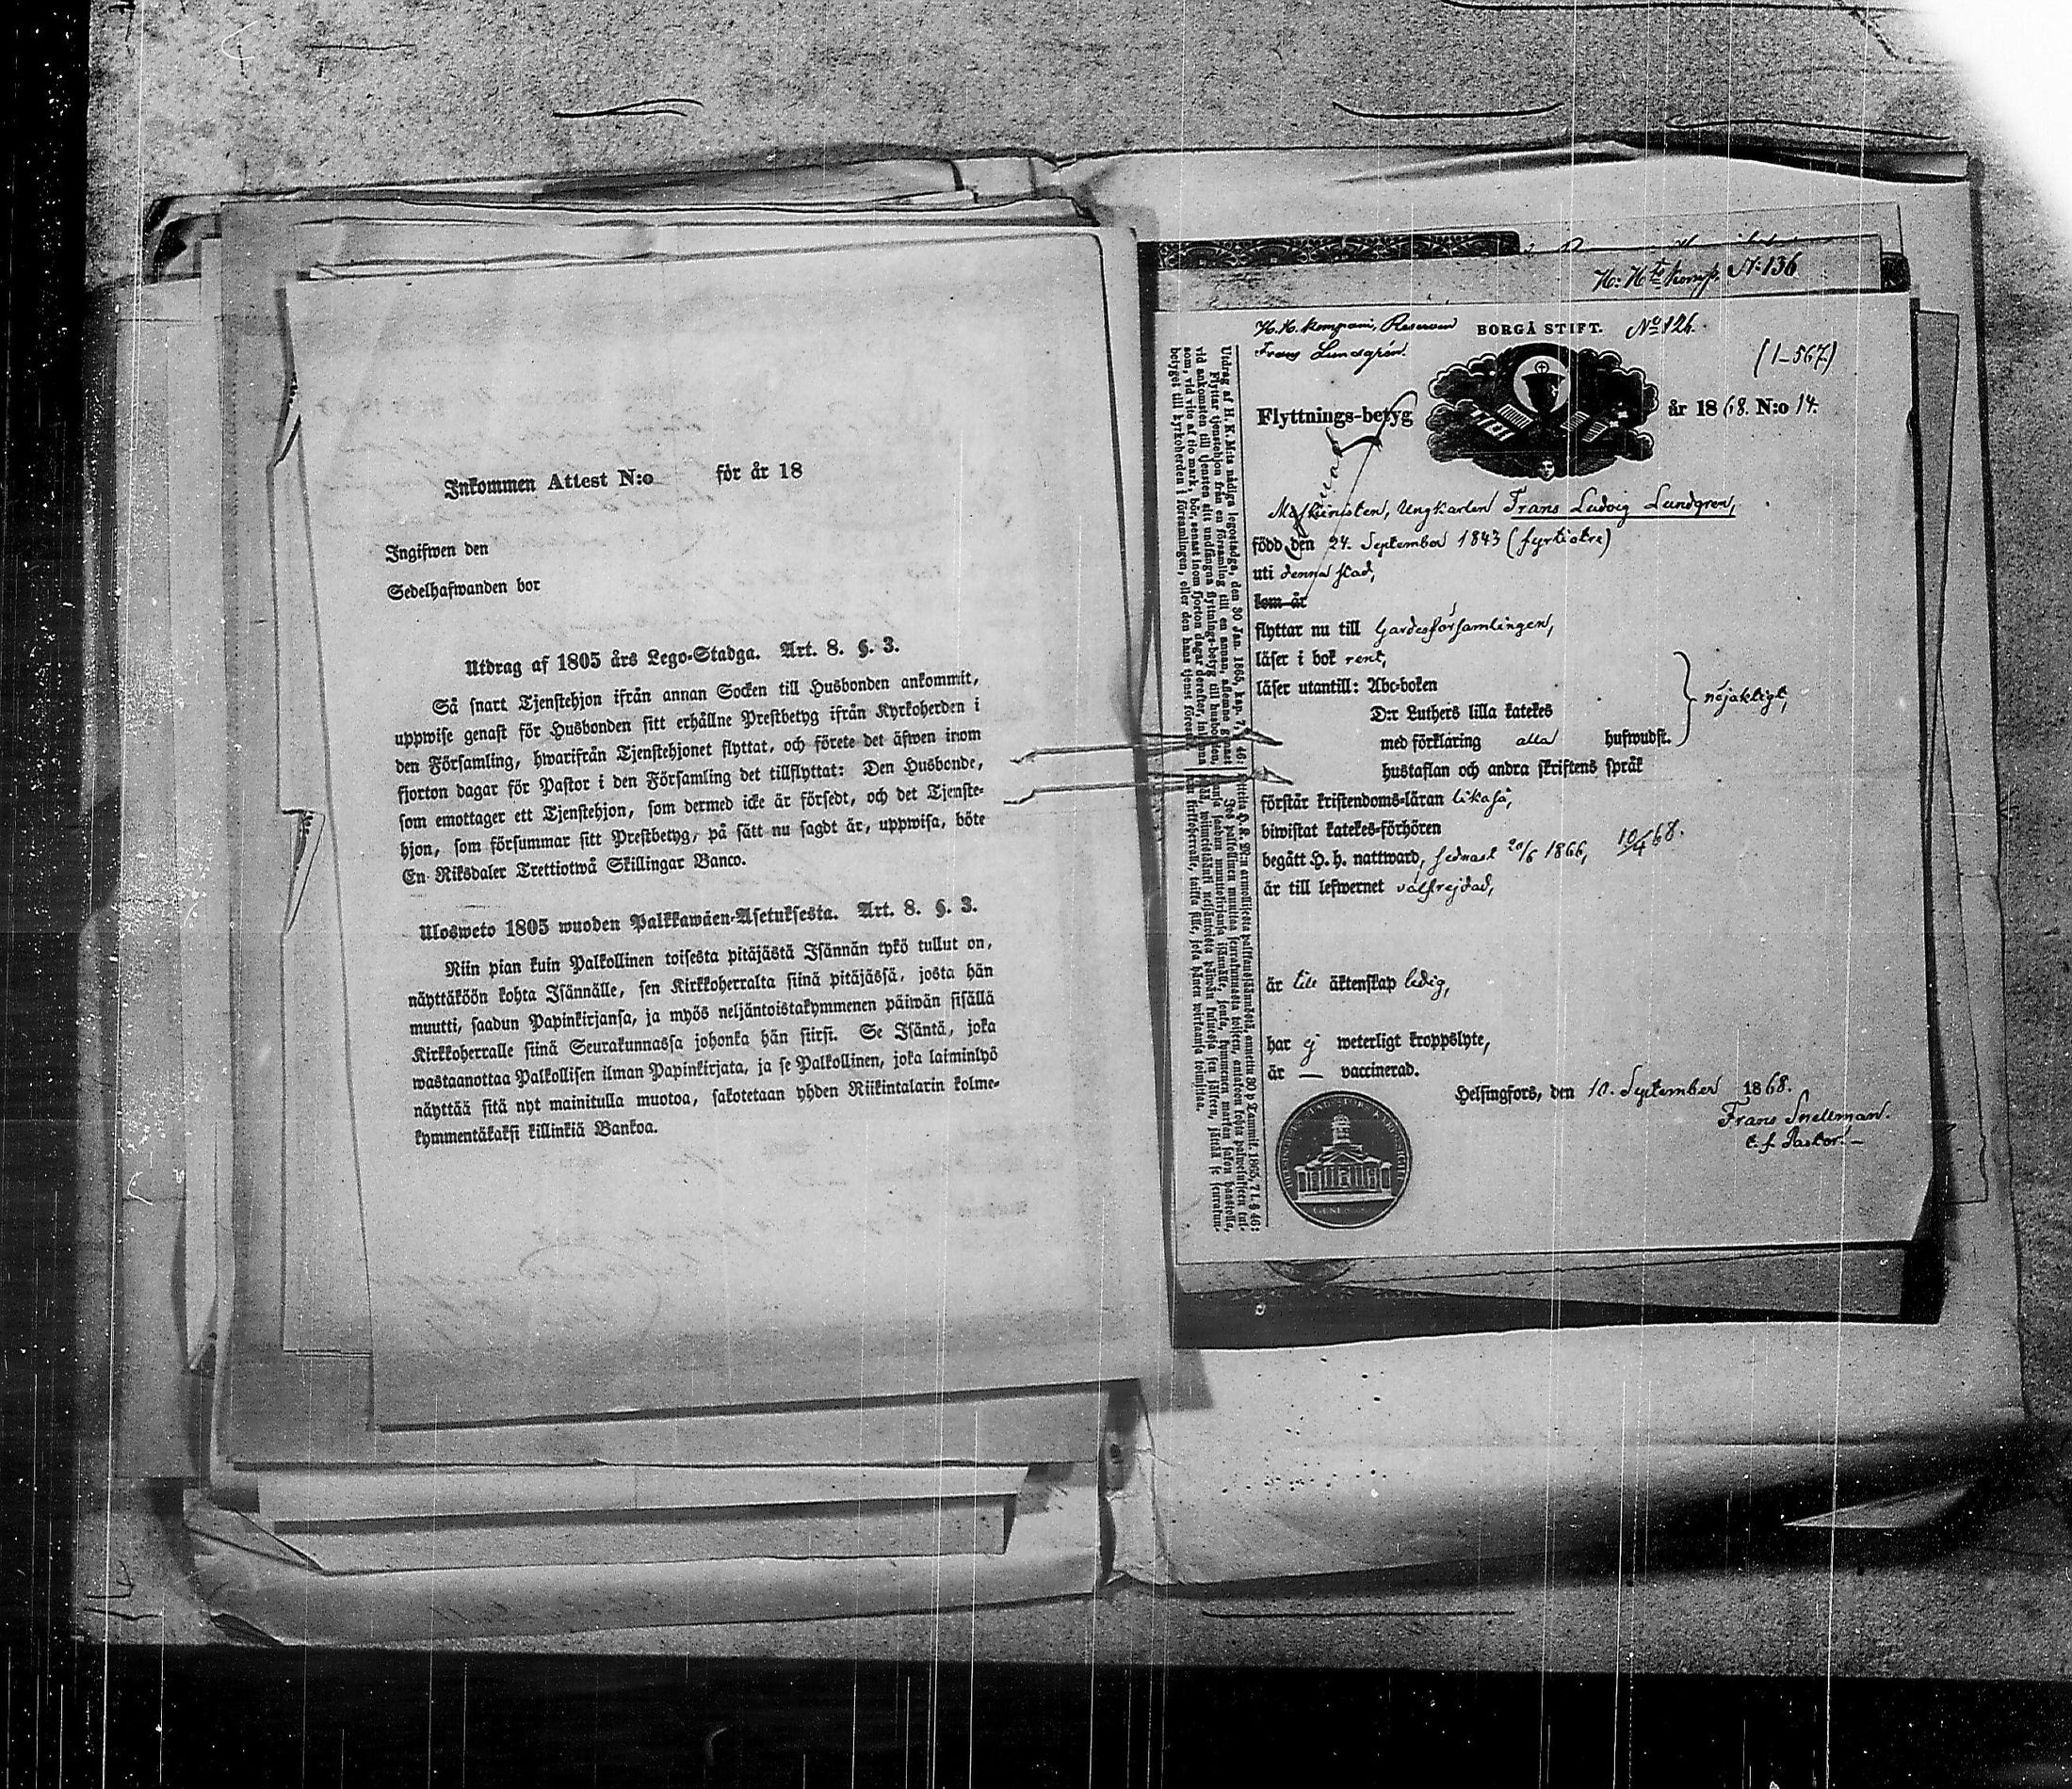 Inkommen Attest N:o för år 18
Ingifwen den
Sedelhafwanden bor
Utdrag af 1805 års Lego-Stadga. Art. 8. §. 3.
Så snart Tjenstehjon ifrån annan Socken till Husbonden ankommit,
uppwise genast för Husbonden sitt erhållne Prestbetyg ifrån Kyrkoherden i
den Församling, hwarifrån Tjenstehjonet flyttat, och förete det äfwen inom
fjorton dagar för Pastor i den Församling det tillflyttat: Den Husbonde,
som emottager ett Tjenstehjon, som dermed icke är försedt, och det Tjenste-
hjon, som försummar sitt Prestbetyg, på sätt nu sagdt är, uppwisa, böte
En Riksdaler Trettiotwå Skillingar Banco.
Ulosweto 1805 wuoden Palkkawäen-Asetuksesta. Art. 8. §. 3.
Niin pian kuin Palkollinen toisesta pitäjästä Isännän tykö tullut on,
näyttäköön kohta Isännälle, sen Kirkkoherralta siinä pitäjässä, josta hän
muutti, saadun Papinkirjansa, ja myös neljäntoistakymmenen päiwän sisällä
Kirkkoherralle siinä Seurakunnassa johonka hän siirsi. Se Isäntä, joka
wastaanottaa Palkollisen ilman Papinkirjata, ja se Palkollinen, joka laiminlyö
näyttää sitä nyt mainitulla muotoa, sakotetaan yhden Riikintalarin kolme-
kymmentäkaksi killinkiä Bankoa.
H. H. Komp. N: 136
H. H. kompani, Reserven BORGÅ STIFT. No 126.
Frans Lundgrén.
(1-567)
Flyttnings-betyg år 1868. N:o 14.
Ungkarlen Frans Ludvig Lundgren,
född den 24. September 1843 (fyrtiotre)
uti denna stad,
kom år
flyttar nu till Gardesförsamlingen,
läser i bok rent,
läser utantill: Abc-boken
D:r Luthers lilla katekes
nöjaktigt,
med förklaring alla hufwudst.
hustaflan och andra skriftens språk
förstår kristendoms-läran likaså,
biwistat katekes-förhören
begått H. h. nattward, sednast 20/6 1866, 10/4 68.
är till lefwernet välfrejdad,
är till äktenskap ledig,
har ej weterligt kroppslyte,
är — vaccinerad.
Helsingfors, den 10. September 1868.
Frans Snellman.
t. f. Pastor.
Utdrag af H. K. M:ts nådiga legostadga, den 30 Jan. 1865, kap. 7, § 46: